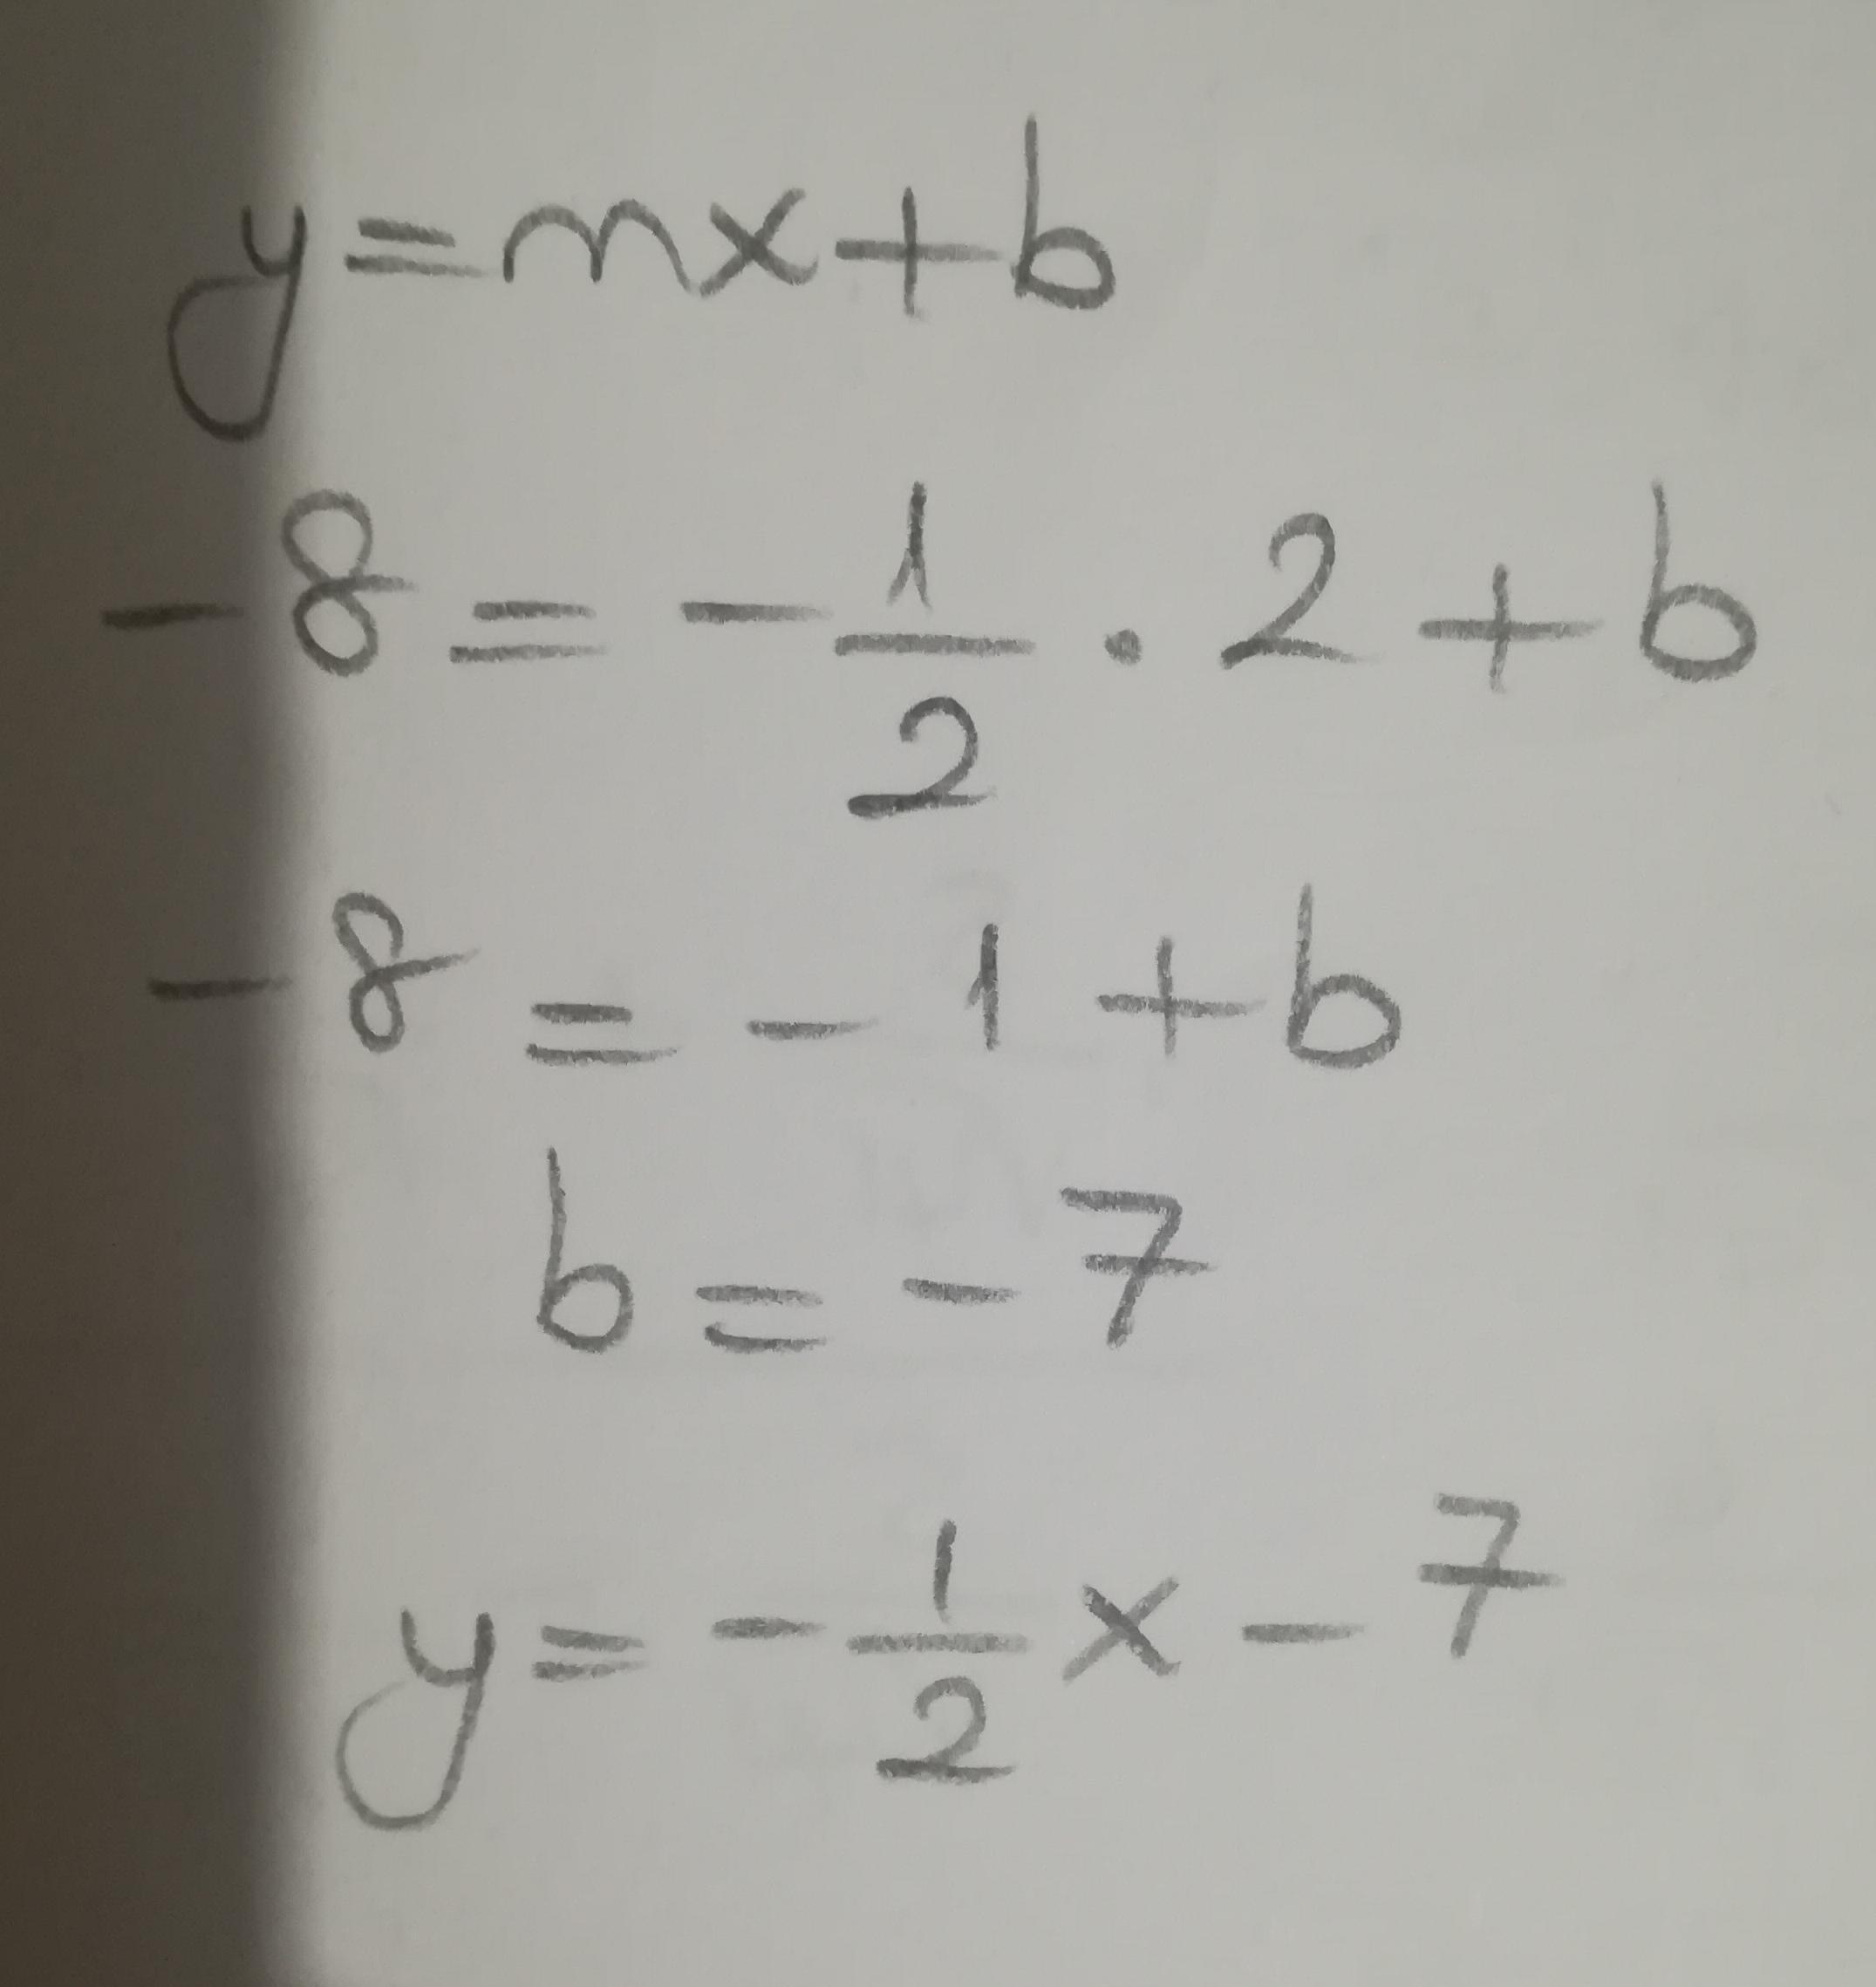 y=mx+b
-8=-1/2·2+b
-8=-1+b
b=-7
y=-1/2x-7